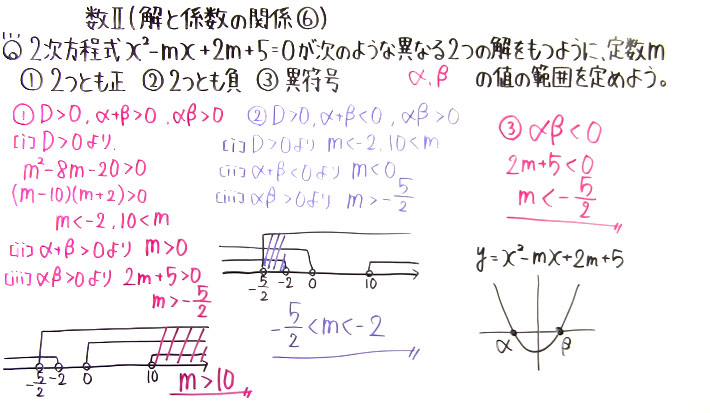 数Ⅱ(解と係数の関係⑥)
例 2次方程式x²-mx+2m+5=0が次のような異なる2つの解をもつように、定数m
① 2つとも正 ② 2つとも負 ③ 異符号 α,β の値の範囲を定めよう。
① D>0, α+β>0, αβ>0
[i] D>0より、
m²-8m-20>0
(m-10)(m+2)>0
m<-2, 10<m
[ii] α+β>0より m>0
[iii] αβ>0より 2m+5>0
m>-5/2
-5/2 -2 0 10
m>10
② D>0, α+β<0, αβ>0
[i] D>0より m<-2, 10<m
[ii] α+β<0より m<0
[iii] αβ>0より m>-5/2
-5/2 -2 0 10
-5/2<m<-2
③ αβ<0
2m+5<0
m<-5/2
y=x²-mx+2m+5
α β